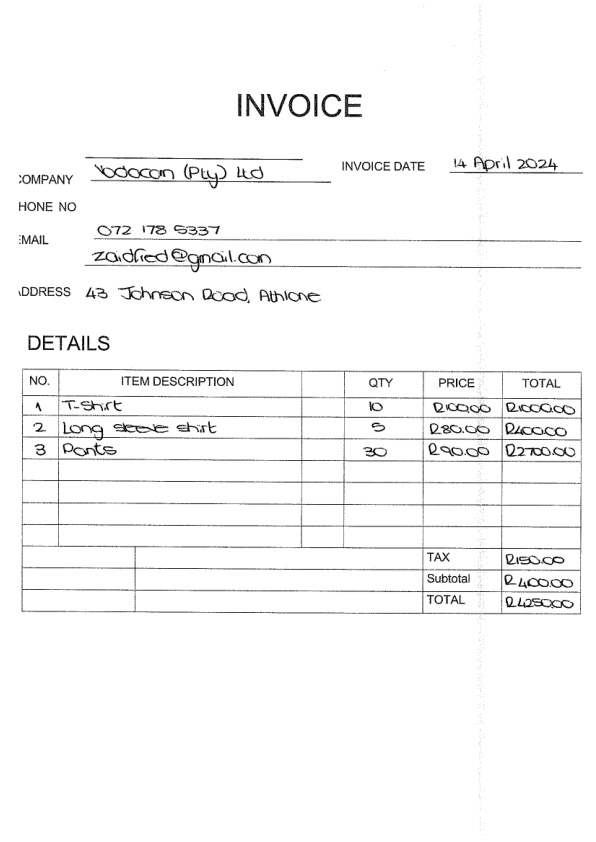 INVOICE
COMPANY Vodacom (Pty) Ltd INVOICE DATE 14 April 2024
PHONE NO
EMAIL 072 178 5337
zaidfied@gmail.com
ADDRESS 43 Johnson Road, Athlone
DETAILS
NO. ITEM DESCRIPTION QTY PRICE TOTAL
1 T-shirt 10 R100,00 R1000,00
2 Long sleeve shirt 5 R80.00 R400.00
3 Pants 30 R90.00 R2700.00
TAX R150.00
Subtotal R400.00
TOTAL R4250.00